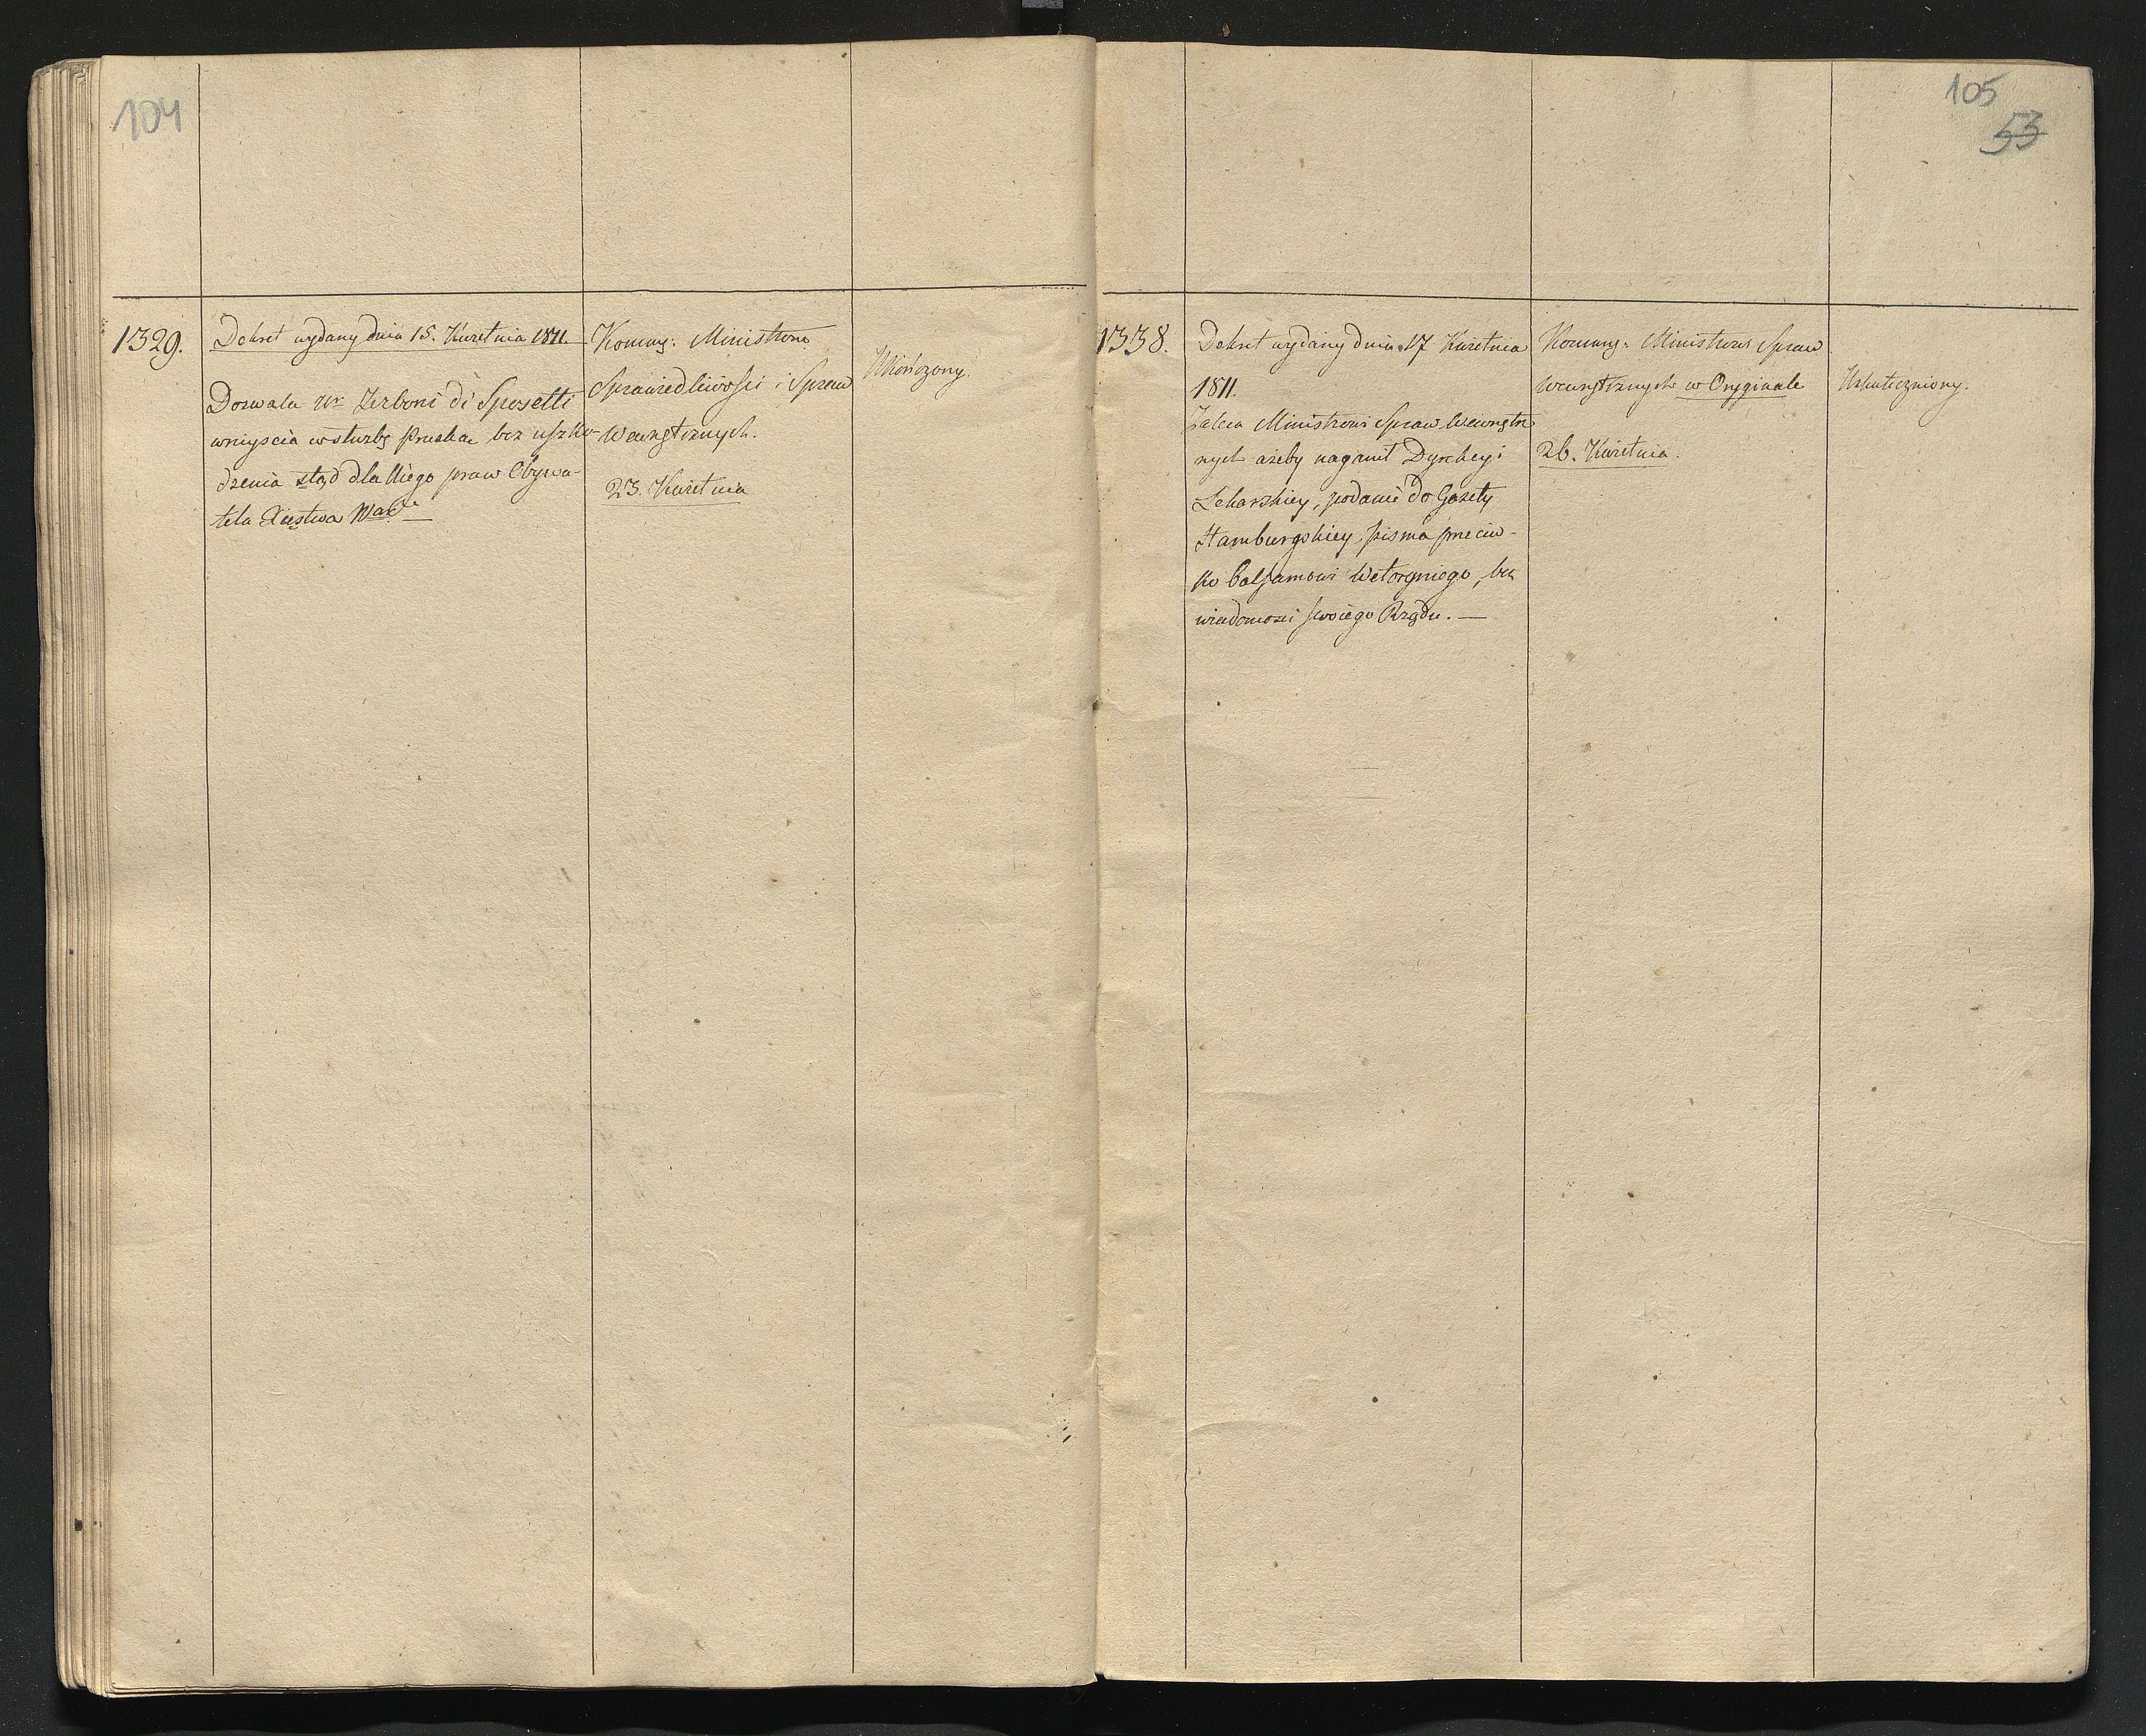 104
1329.
Dekret wydany dnia 15. Kwietnia 1811.
Dozwala Ur Zerboni di Sposetti
wniyscia w służbę Pruską bez uszko-
dzenia ztąd dla Niego praw Obywa-
tela Xięstwa
Kommu: Ministrom
Sprawiedliwości i Spraw
Wewnętrznych.
23. Kwietnia
Ukończony.
105
53
1338.
Dekret wydany dnia 17 Kwietnia
1811.
Zaleca Ministrowi Spraw Wewnętrz
nych ażeby naganił Dyrekcyi
Lekarskiey, podanie do Gazety
Hamburgskiey pisma przeciw-
ko Balsamowi bez
wiadomości swoiego Rządu. —
Kommu: Ministrowi Spraw
Wewnętrznych w Oryginale
26. Kwietnia.
Uskuteczniony.